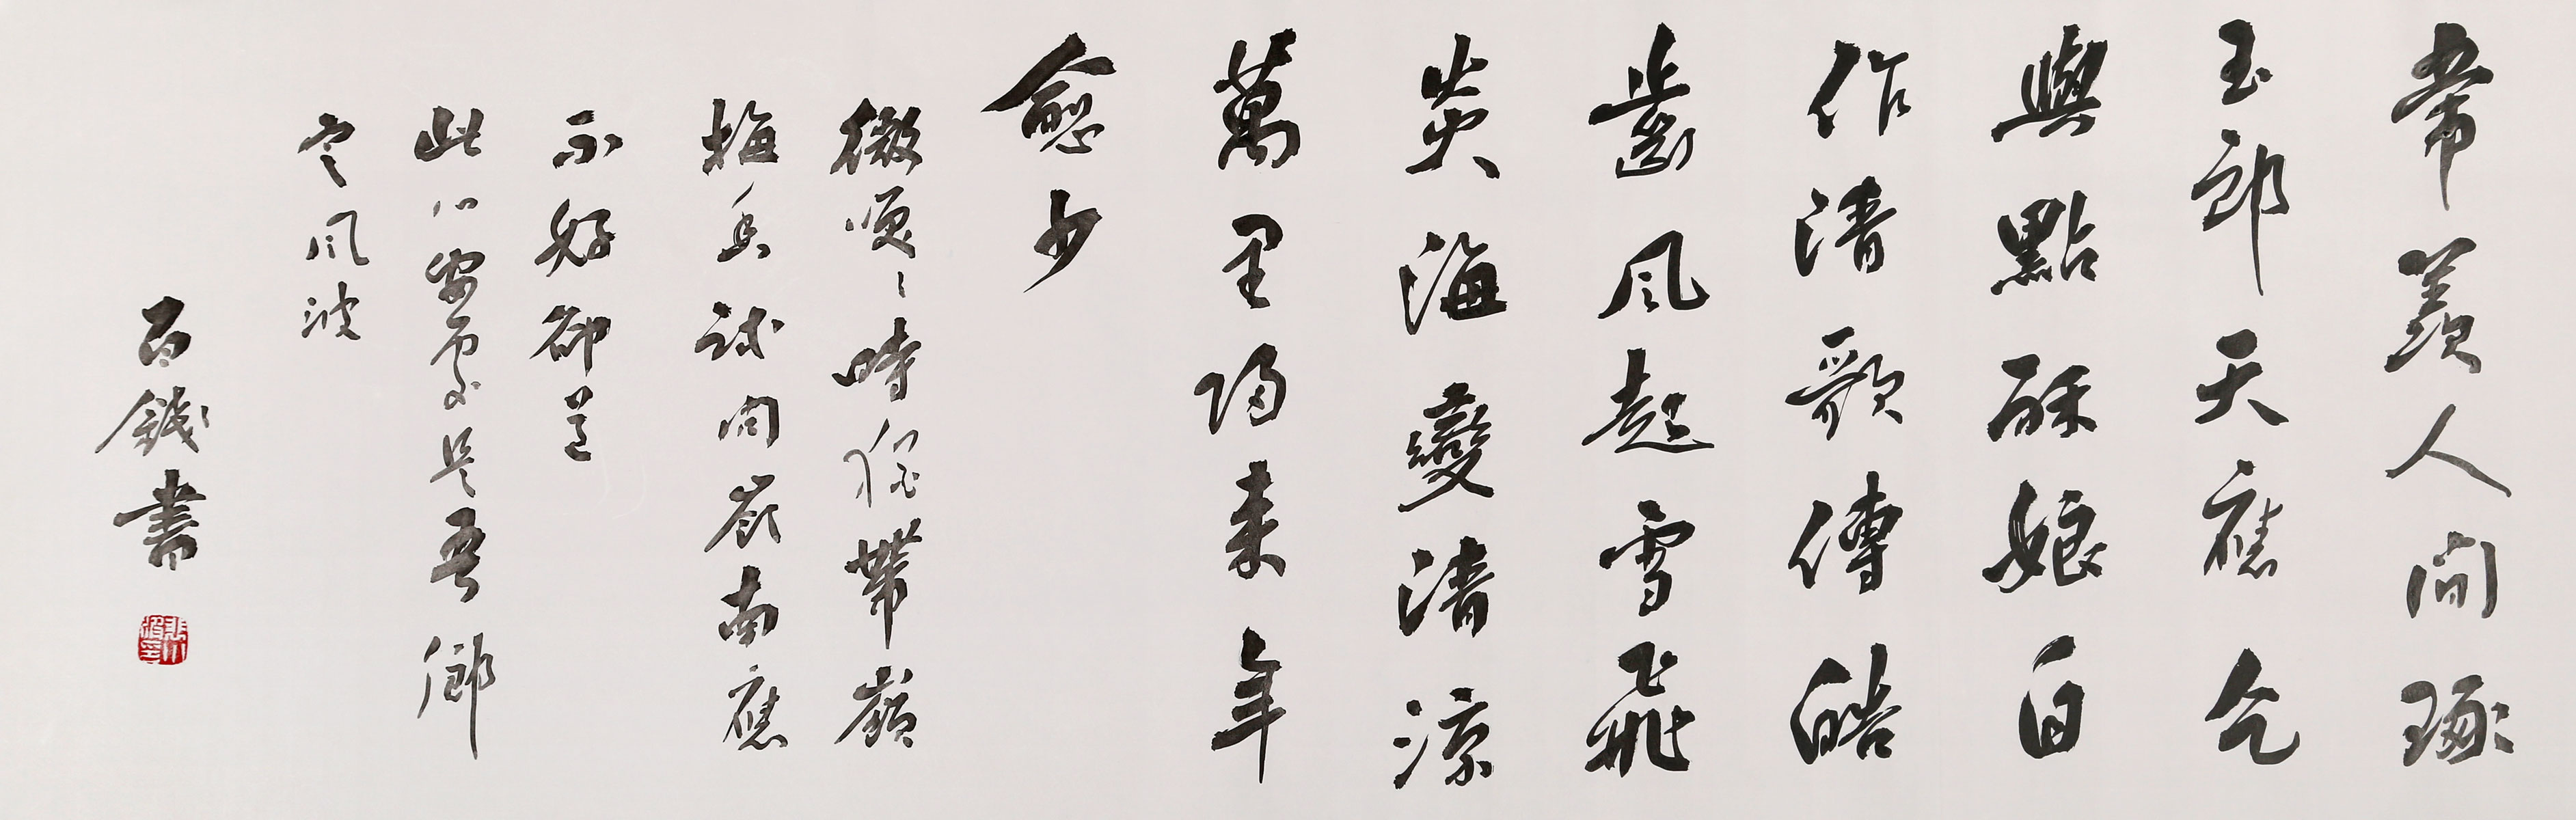 常羨人間琢
玉郎天應乞
與點酥娘自
作清歌傳皓
齒風起雪飛
炎海變清涼
萬里歸来年
愈少
微咲〻時猶帶嶺
梅香試問嶺南應
不好卻道
此心安處是吾鄉
定風波
百錢書